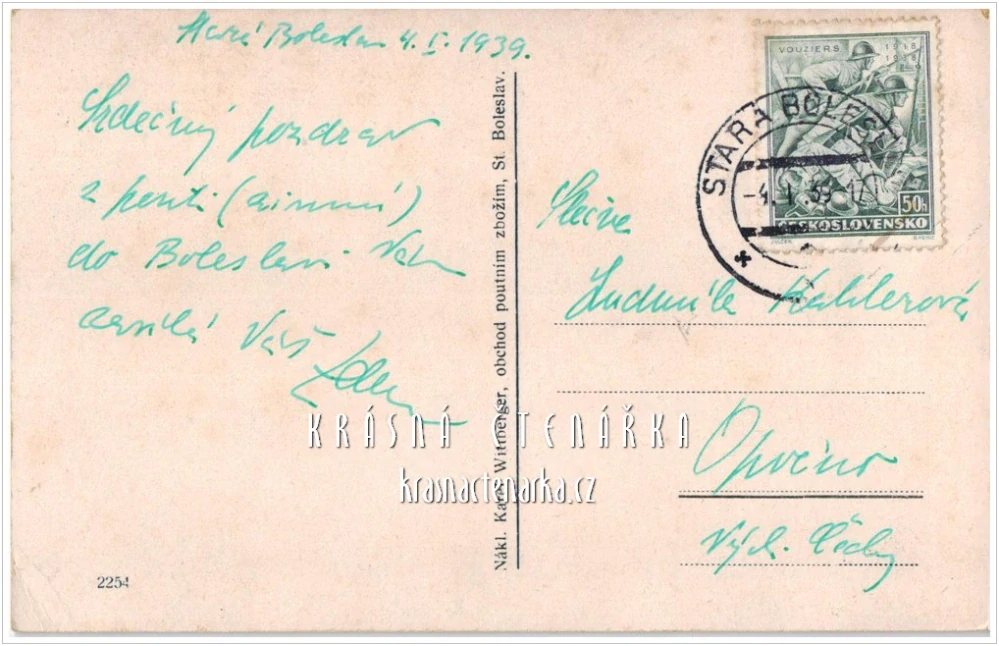 Stará Boleslav 4.I.1939.
Srdečný pozdrav
z pouti (zimní)
do Boleslavi Vám
zasílá Váš Zden
Nákl. Karel Wittberger, obchod poutním zbožím, St. Boleslav.
2254
VOUZIERS 1918 1938
50h
ČESKOSLOVENSKO
STARÁ BOLESL
-4.I.39-1
Slečna
Ludmila Kahlerová
Opočno
Vých. Čechy
KRÁSNÁ ČTENÁŘKA
krasnactenarka.cz